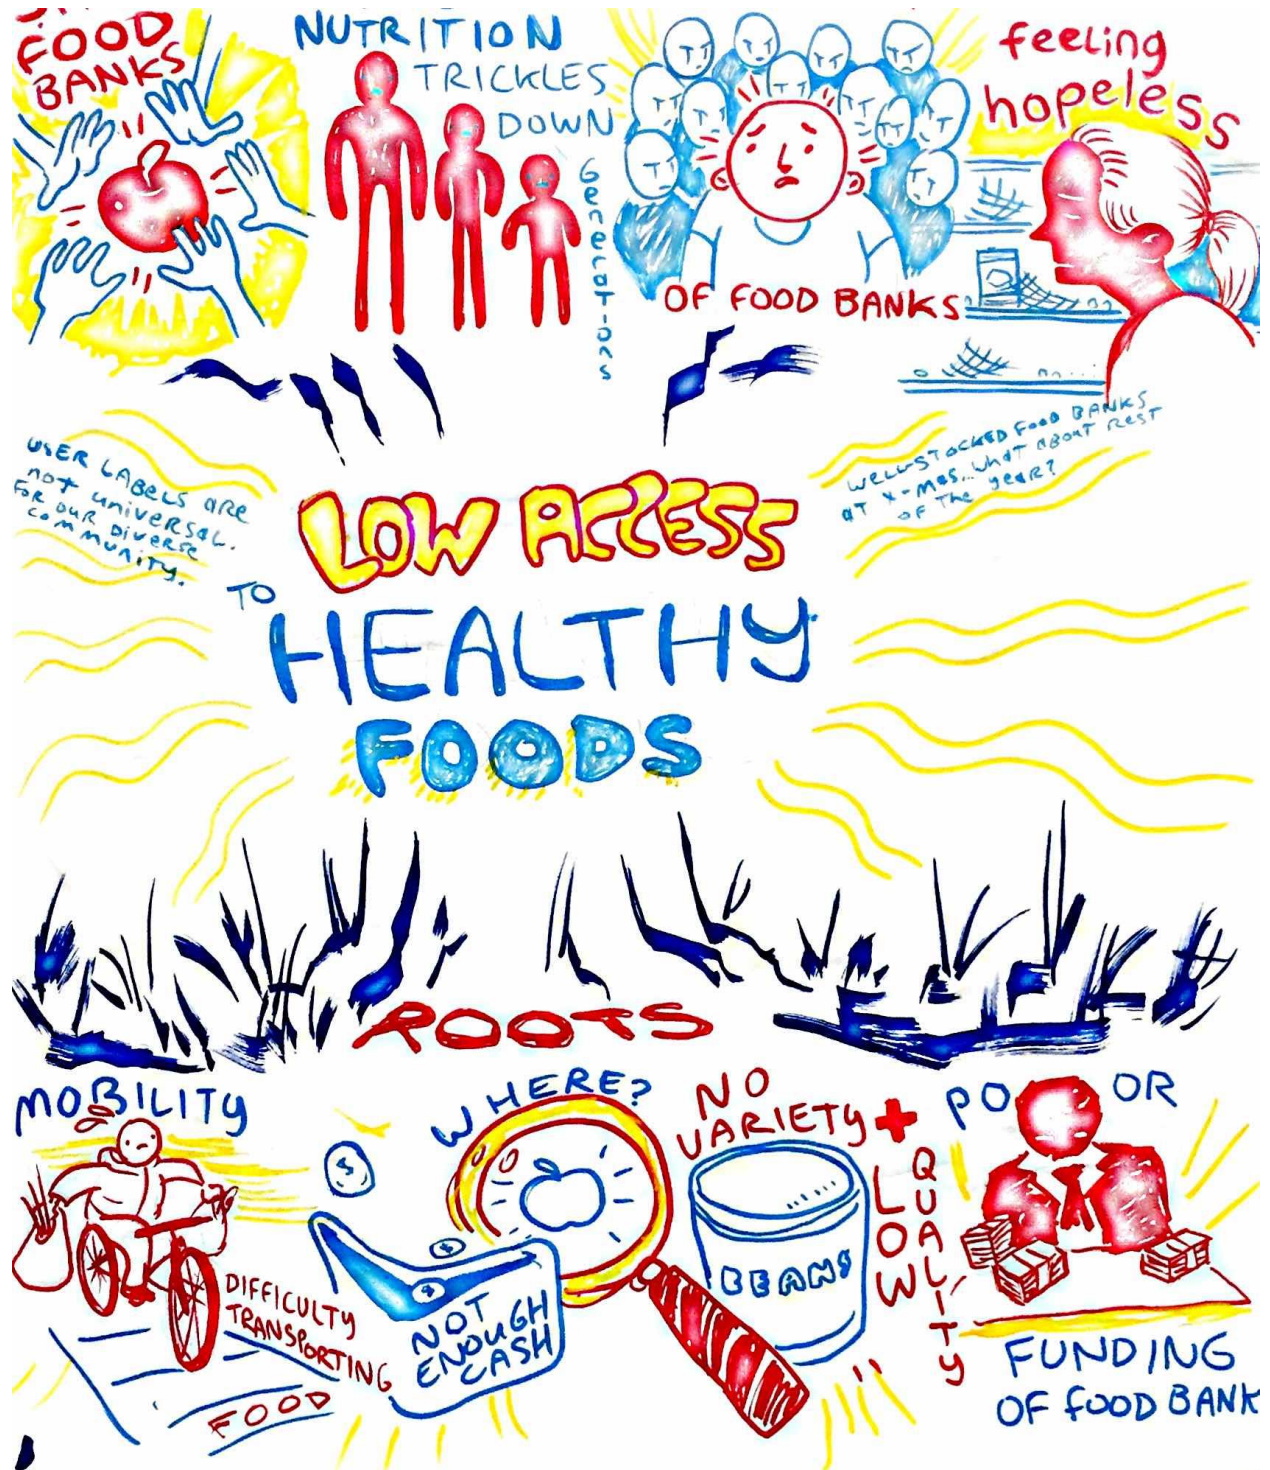 FOOD
BANKS
NUTRITION
TRICKLES
DOWN
Generations
OF FOOD BANKS
feeling
hopeless
USER LABELS are
not universal.
FOR OUR DIVERSE
COMMUNITY.
WELL-STOCKED FOOD BANKS
AT X-MAS... WHAT ABOUT REST
OF THE YEAR?
LOW ACCESS
TO
HEALTHY
FOODS
ROOTS
MOBILITY
DIFFICULTY
TRANSPORTING
FOOD
$
$
$
NOT
ENOUGH
CASH
WHERE?
NO
VARIETY +
LOW
QUALITY
BEANS
POOR
FUNDING
OF FOOD BANK